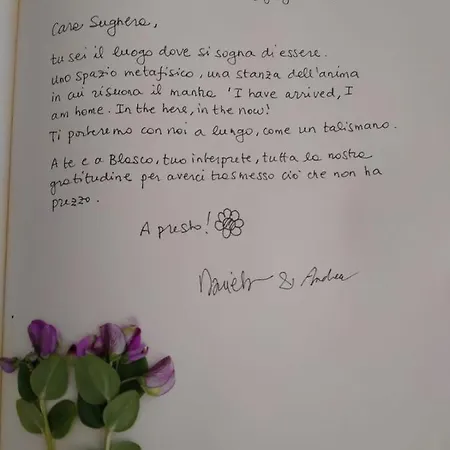 Cara Sughera,
tu sei il luogo dove si sogna di essere.
uno spazio metafisico, una stanza dell'anima
in cui risuona il mantra 'I have arrived, I
am home. In the here, in the now!
Ti porteremo con noi a lungo, come un talismano.
A te e a Blasco, tuo interprete, tutta la nostra
gratitudine per averci trasmesso ciò che non ha
prezzo.
A presto!
& Andrea